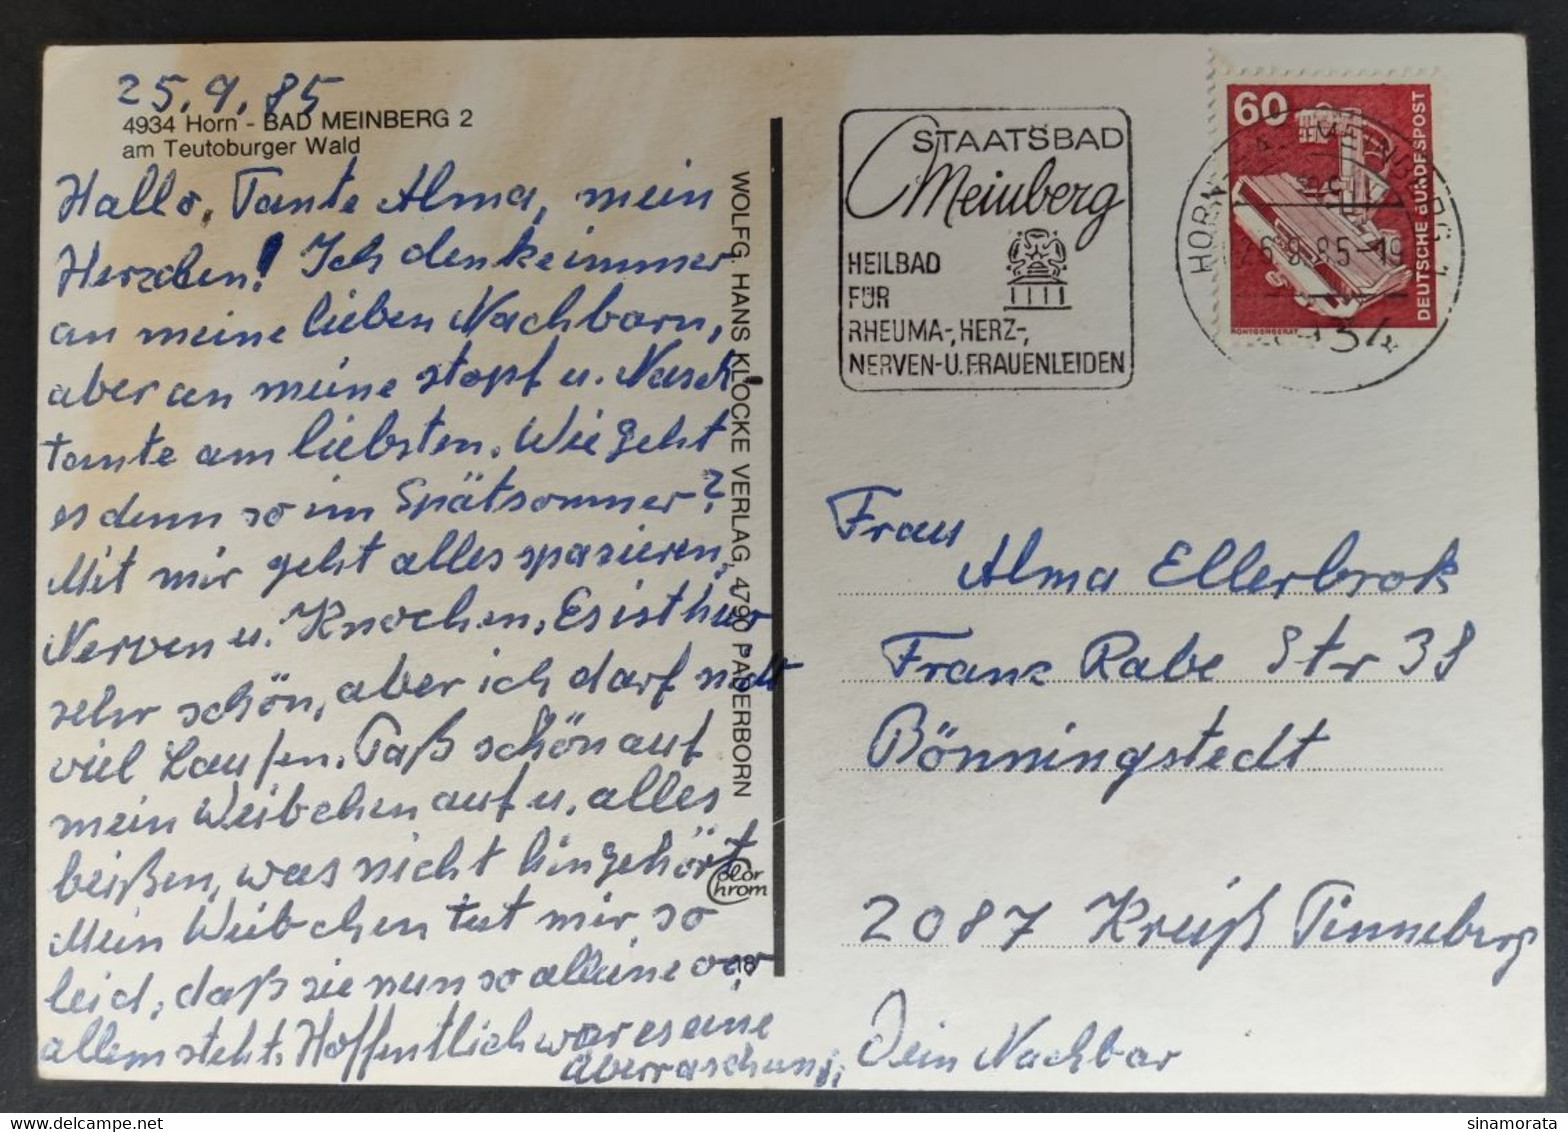 25.9.85
4934 Horn - BAD MEINBERG 2
am Teutoburger Wald
Hallo, Tante Alma, mein
Herzchen! Ich denke immer
an meine lieben Nachbarn,
aber an meine stopf u. Nasch
tante am liebsten. Wie geht
es denn so im Spätsommer?
Mit mir geht alles spazieren,
Nerven u. Knochen. Es ist hier
sehr schön, aber ich darf nicht
viel Laufen. Paß schön auf
mein Weibchen auf u. alles
beißen, was nicht hingehört
Mein Weibchen tut mir so
leid, daß sie nun so alleine vor
allem steht. Hoffentlich war es eine
überraschung,
Dein Nachbar
WOLFG. HANS KLOCKE VERLAG, 4790 PADERBORN
Color
Chrom
18
STAATSBAD
Meinberg
HEILBAD
FÜR
RHEUMA-, HERZ-,
NERVEN- U. FRAUENLEIDEN
60
DEUTSCHE BUNDESPOST
RÖNTGENGERÄT
HORN
26.9.85-19
4934
Frau
Alma Ellerbrok
Franz Rabe Str 38
Bönningstedt
2087 Kreiß Pinneberg
sinamorata